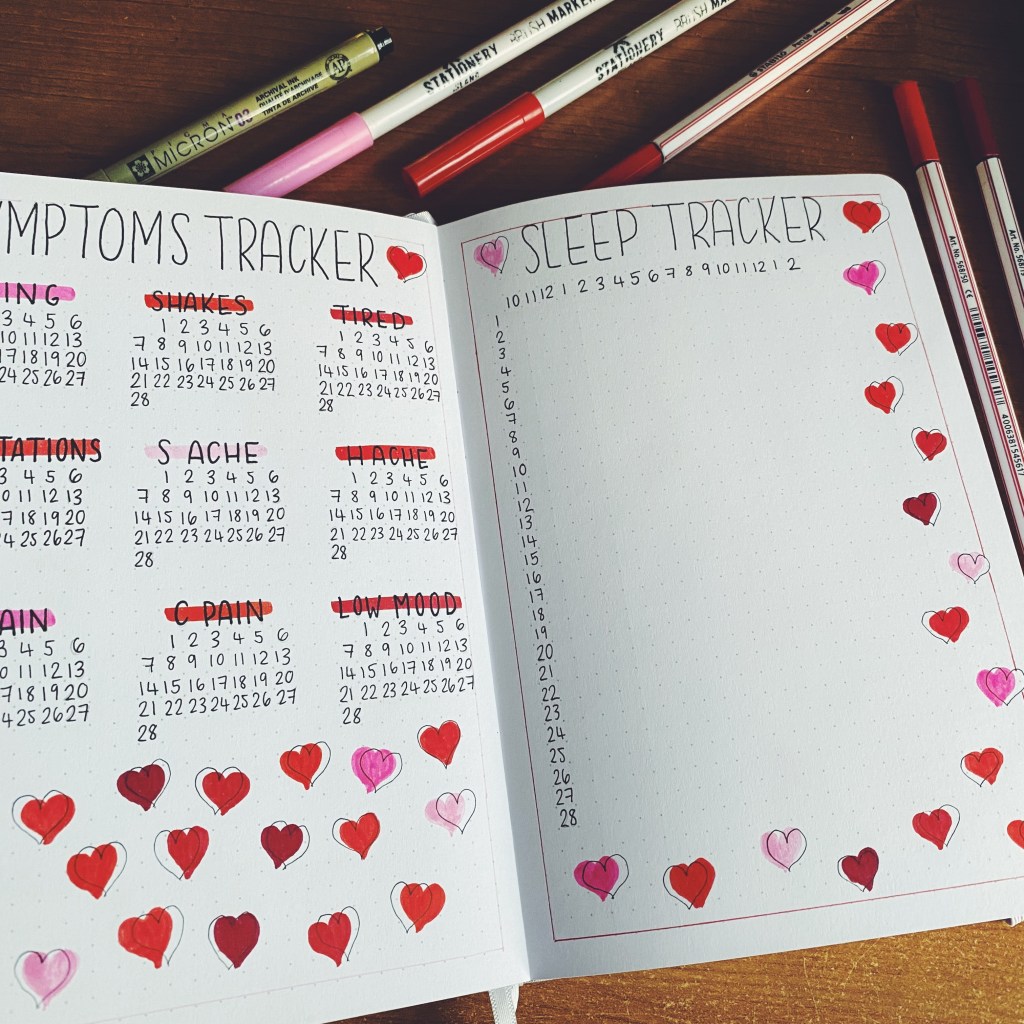 MICRON 03
ARCHIVAL INK
STATIONERY
BRUSH MARKER
STATIONERY
BRUSH MARKER
STABILO
Art. No. 568/50 CE
4006381545617
Art. No. 568/
YMPTOMS TRACKER
ING
3 4 5 6
10 11 12 13
17 18 19 20
24 25 26 27
SHAKES
1 2 3 4 5 6
7 8 9 10 11 12 13
14 15 16 17 18 19 20
21 22 23 24 25 26 27
28
TIRED
1 2 3 4 5 6
7 8 9 10 11 12 13
14 15 16 17 18 19 20
21 22 23 24 25 26 27
28
TATIONS
3 4 5 6
0 11 12 13
7 18 19 20
4 25 26 27
S ACHE
1 2 3 4 5 6
7 8 9 10 11 12 13
14 15 16 17 18 19 20
21 22 23 24 25 26 27
28
H ACHE
1 2 3 4 5 6
7 8 9 10 11 12 13
14 15 16 17 18 19 20
21 22 23 24 25 26 27
28
AIN
3 4 5 6
0 11 12 13
7 18 19 20
4 25 26 27
C PAIN
1 2 3 4 5 6
7 8 9 10 11 12 13
14 15 16 17 18 19 20
21 22 23 24 25 26 27
28
LOW MOOD
1 2 3 4 5 6
7 8 9 10 11 12 13
14 15 16 17 18 19 20
21 22 23 24 25 26 27
28
SLEEP TRACKER
10 11 12 1 2 3 4 5 6 7 8 9 10 11 12 1 2
1
2
3
4
5
6
7
8
9
10
11
12
13
14
15
16
17
18
19
20
21
22
23
24
25
26
27
28